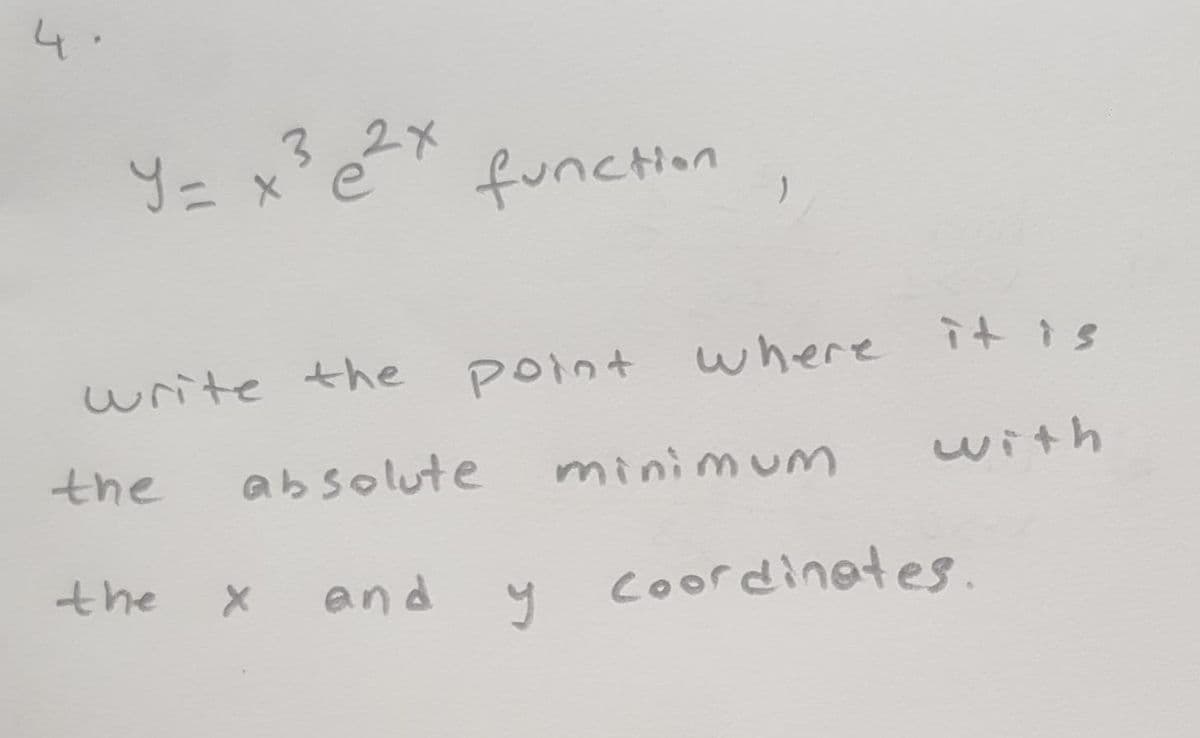 4.
y = x³ e²ˣ function,
write the point where it is
the absolute minimum with
the x and y coordinates.